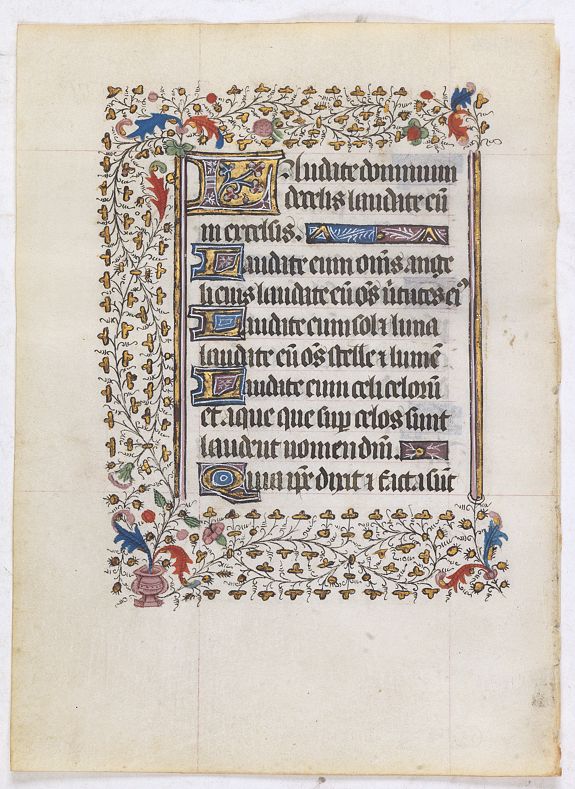 Laudate dominum
de celis laudate eū
in excelsis.
Laudate eum om̄s ange
li eius laudate eū om̄s v̄tutes ei⁹
Laudate eum sol ⁊ luna
laudate eū om̄s stelle ⁊ lumē
Laudate eum celi celorū
et aque que sup celos sunt
laudent nomen dn̄i.
Quia ip̄e dixit ⁊ f̄cta sūt